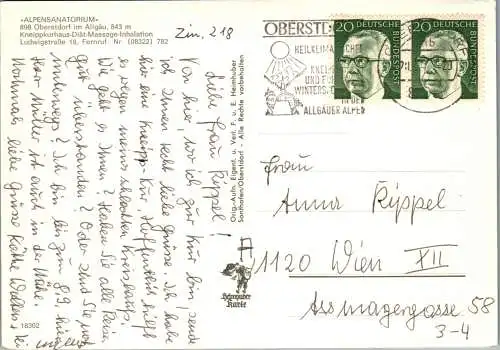 «ALPENSANATORIUM»
898 Oberstdorf im Allgäu, 843 m
Kneippkurhaus-Diät-Massage-Inhalation
Ludwigstraße 18, Fernruf Nr (08322) 782
Zin. 218
Liebe Frau Ryppel!
Von hier, wo ich zur Kur bin sende
ich Ihnen recht liebe Grüsse. Ich habe
es wegen meines schlechten Kreislaufs
hier eine Kneipp-Kur. Hoffentlich hilft
Wie geht es Ihnen? Haben Sie alles
gut überstanden? Oder sind Sie noch
unterwegs? Ich bin bis zum 8.9. hier
Herr Müller ist auch in der Nähe.
Nochmals liebe Grüsse Käthe
18302
Orig.-Aufn. Eigent. u. Verl. F. u. E. Heimhuber
Sonthofen/Oberstdorf - Alle Rechte vorbehalten
Heimhuber
Karte
OBERST
HEILKLIMATISCHER
KNEIPP
WINTERS
IN DEN
ALLGÄUER ALPEN
20
DEUTSCHE
BUNDESPOST
20
DEUTSCHE
BUNDESPOST
Frau
Anna Ryppel
A
1120 Wien XII
Assmayergasse 58
3-4